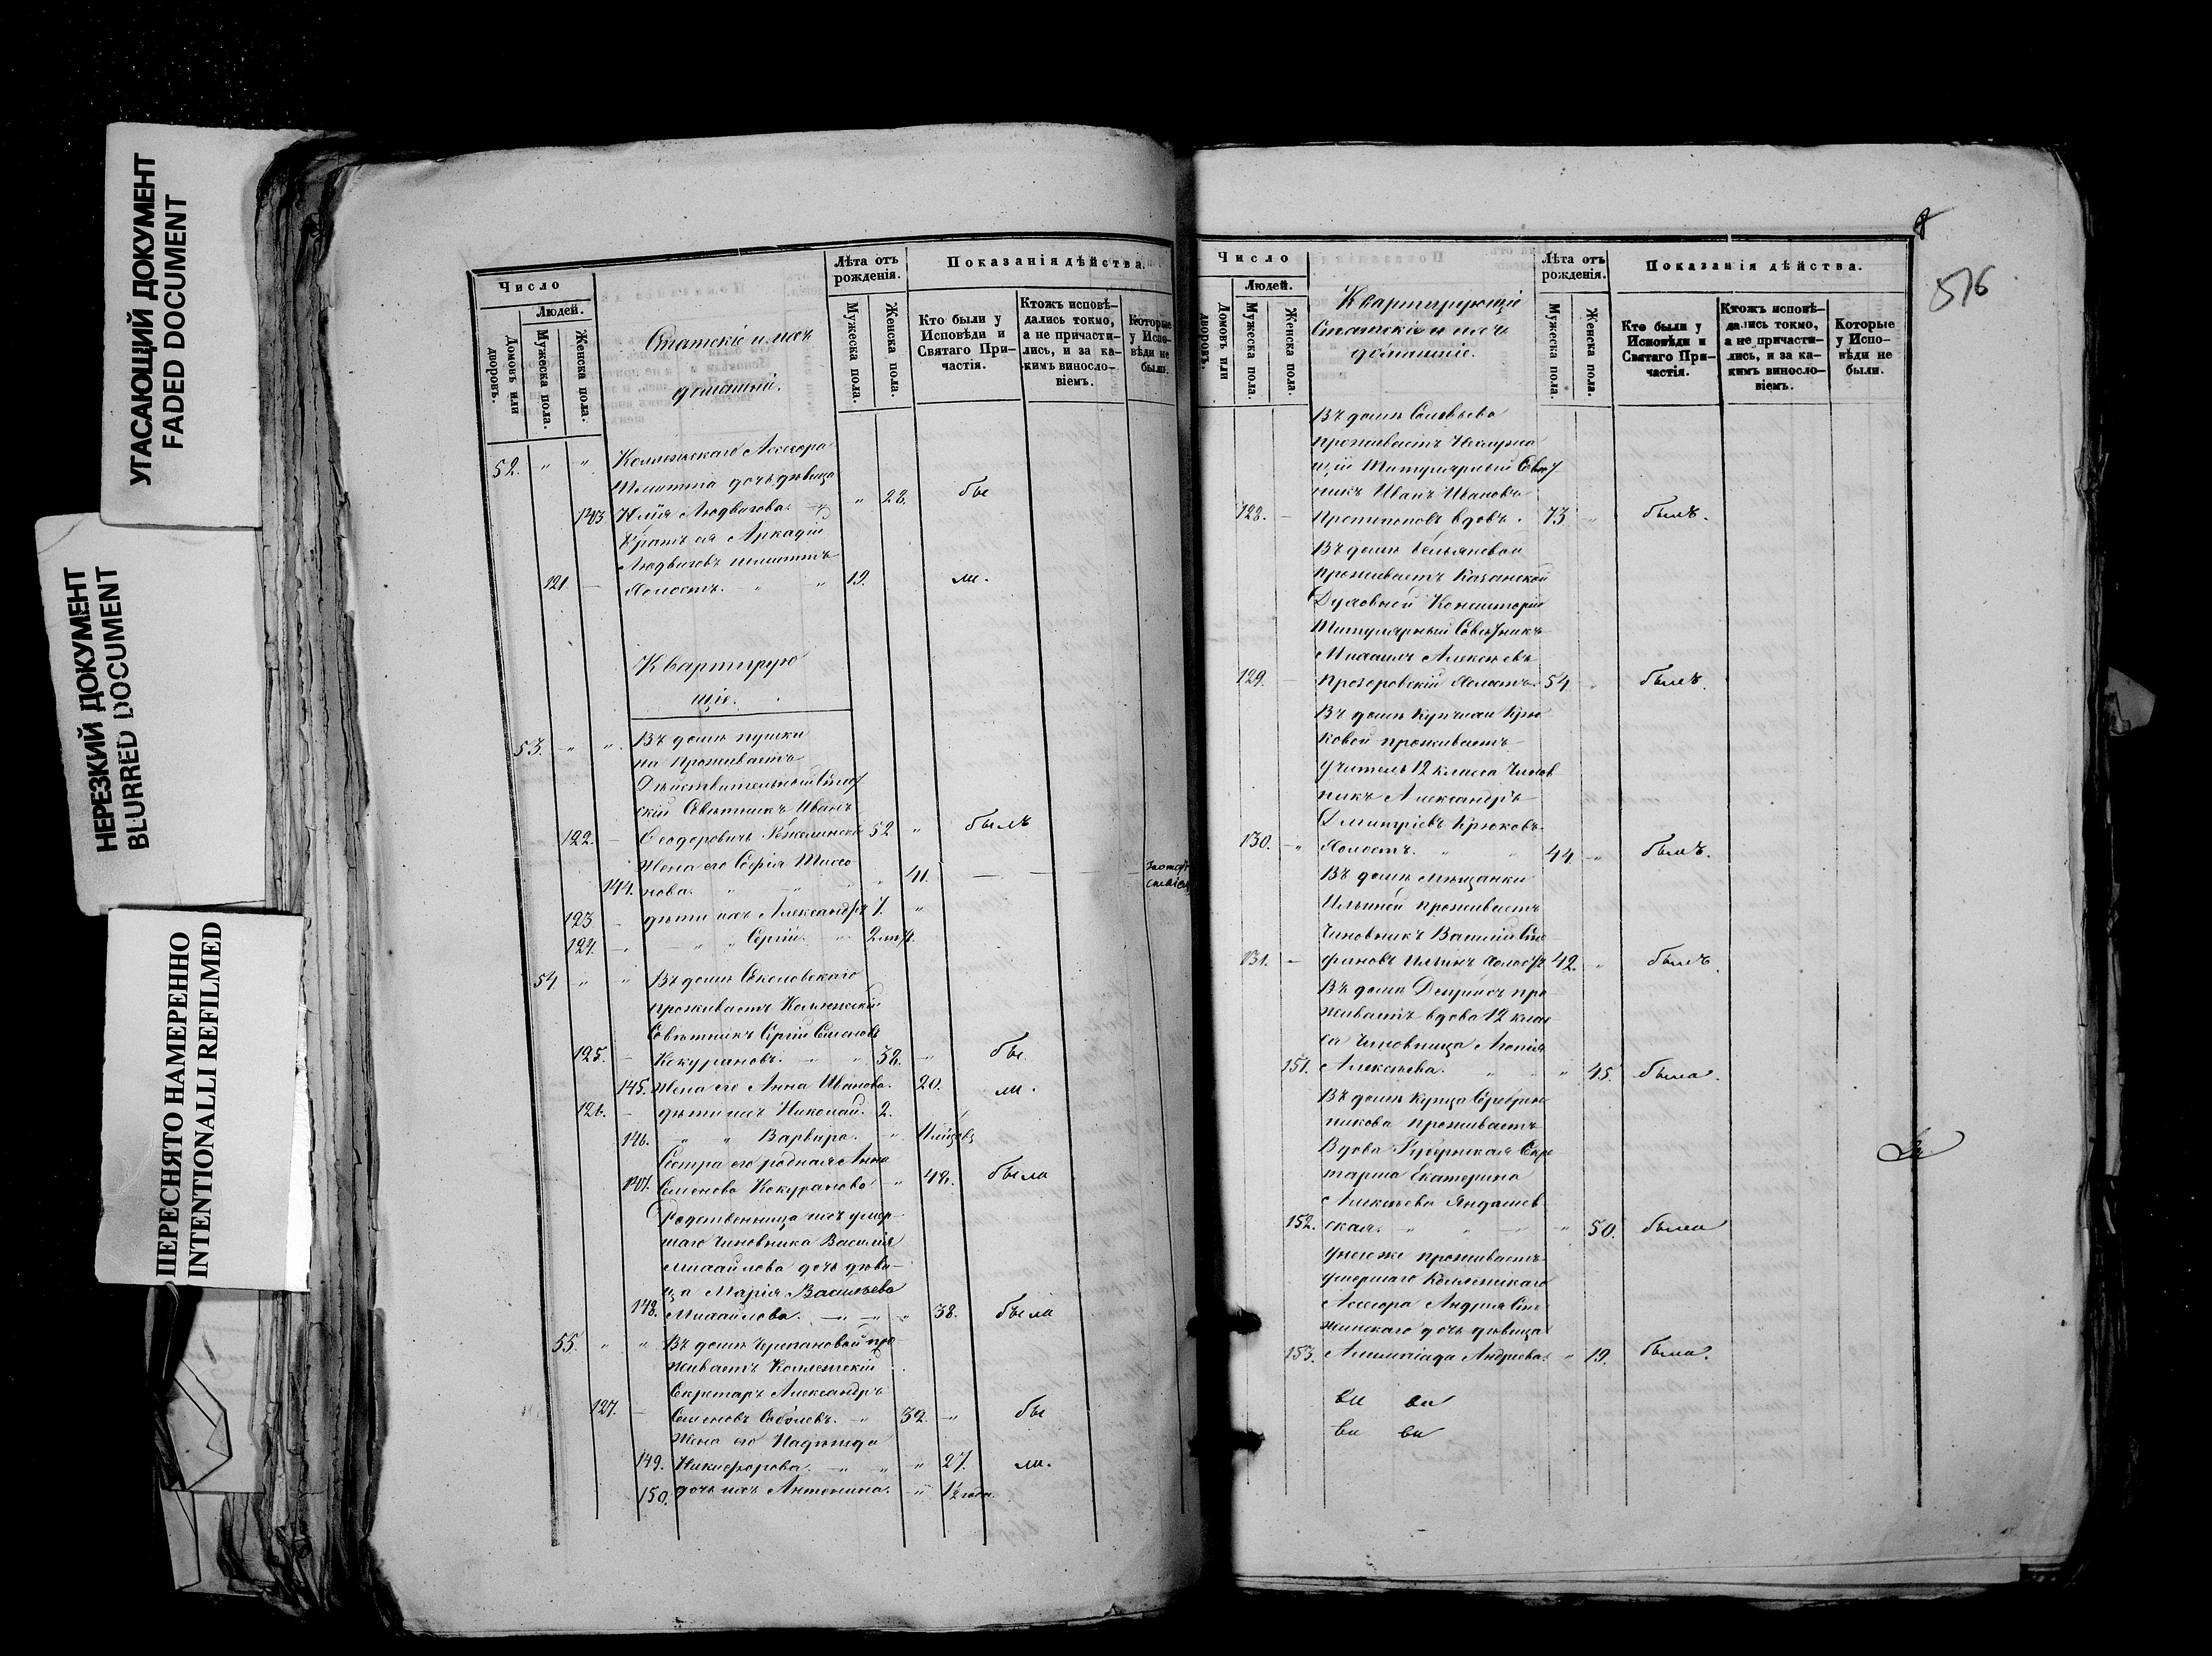 УГАСАЮЩИЙ ДОКУМЕНТ
FADED DOCUMENT
НЕРЕЗКИЙ ДОКУМЕНТ
BLURRED DOCUMENT
ПЕРЕСНЯТО НАМЕРЕННО
INTENTIONALLI REFILMED
Число
Людей.
Домовъ или дворовъ.
Мужеска пола.
Женска пола.
Статскіе и ихъ
домашніи.
Лѣта отъ рожденія.
Мужеска пола.
Женска пола.
Показанія дѣйства.
Кто были у Исповѣди и Святаго Причастія.
Ктожъ исповѣдались токмо, а не причастились, и за какимъ винословіемъ.
Которые у Исповѣди не были.
52. " " Коллежскаго Ассесора
дочь девица
143 Юлія Людвигова. " 28. бы
Братъ ея Аркадій
Людвиговъ
121. — Холостъ. " " 19. ли.
Квартирую
щіе.
53. " " Въ домѣ Пушки
на Проживаетъ
Дѣйствительный Стат
скій Совѣтникъ Иванъ
122. — Ѳеодоровичъ 52 " былъ
Жена его Софія
144. нова. " " " 41. — —
123 — дѣти ихъ Александръ 7. "
124. — — " " Сергій. " 2
54 " " Въ домѣ Соколовскаго
проживаетъ Коллежскій
Совѣтникъ Сергій Семеновъ
125. — Кокурановъ. — " 38. " бы
145. Жена его Анна Иванова. 20. ли.
126. — дѣти ихъ Николай. 2.
146. " " Варвара. — "
Сестра его родная Анна
147. Семенова Кокуранова " 48. была
Родственница ихъ умер
шаго Чиновника Василія
Михайлова дочь дѣви
ца Марія Васильева
148. Михайлова. — — " 38. была
55. " " Въ домѣ Черепановой про
живаетъ Коллежскій
Секретарь Александръ
127. — Семеновъ Соболевъ. — " 39. — бы
Жена его Надежда
149. Никифорова. — " " 27. ли.
150. дочь ихъ Антонина. " 1½ года.
8
516
Число
Людей.
Домовъ или дворовъ.
Мужеска пола.
Женска пола.
Квартирующіе
Статскіе и ихъ
домашніе.
Лѣта отъ рожденія.
Мужеска пола.
Женска пола.
Показанія дѣйства.
Кто были у Исповѣди и Святаго Причастія.
Ктожъ исповѣдались токмо, а не причастились, и за какимъ винословіемъ.
Которые у Исповѣди не были.
Въ домѣ Соловьева
проживаетъ
щій Титулярный Совѣт
никъ Иванъ Ивановъ
128. — Протопоповъ вдовъ. 73 " былъ.
Въ домѣ
проживаетъ Казанской
Духовной Консисторіи
Титулярный Совѣтникъ
Михаилъ Алексѣевъ
129. — Прозоровскій Холостъ. 54. " былъ.
Въ домѣ Купчихи Крю
ковой проживаетъ
Учитель 12 класса Чинов
никъ Александръ
Дмитріевъ Крюковъ
130. — Холостъ. " " 44. " былъ.
Въ домѣ Мѣщанки
Ильиной проживаетъ
Чиновникъ Василій Сте
131. — фановъ Ильинъ Холостъ 42. " былъ.
Въ домѣ про
живаетъ вдова 12 клас
са Чиновница
151. Алексѣева. " " 45. была.
Въ домѣ Купца Серебрен
никова проживаетъ
Вдова Губернская Секре
тарша Екатерина
Алексѣева Яндашев
152. ская. " " — " 50. была
У негоже проживаетъ
умершаго Коллежскаго
Ассесора Андрея
дочь дѣвица
153. Андреева. " 19. была.